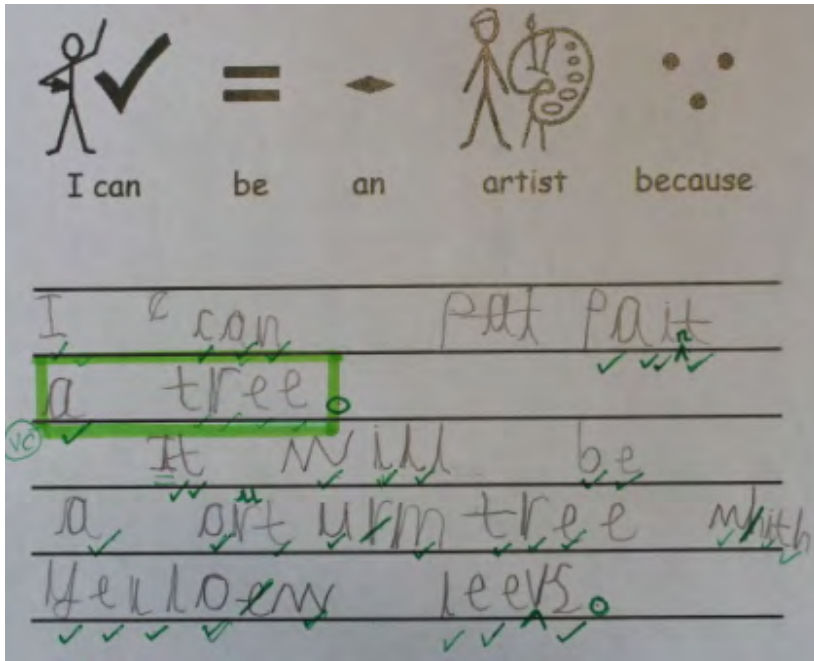 I can be an artist because
I c can pat pait
n
a tree.
VC
It will be
u
a ort urm tree whith
Yellloew leevs.